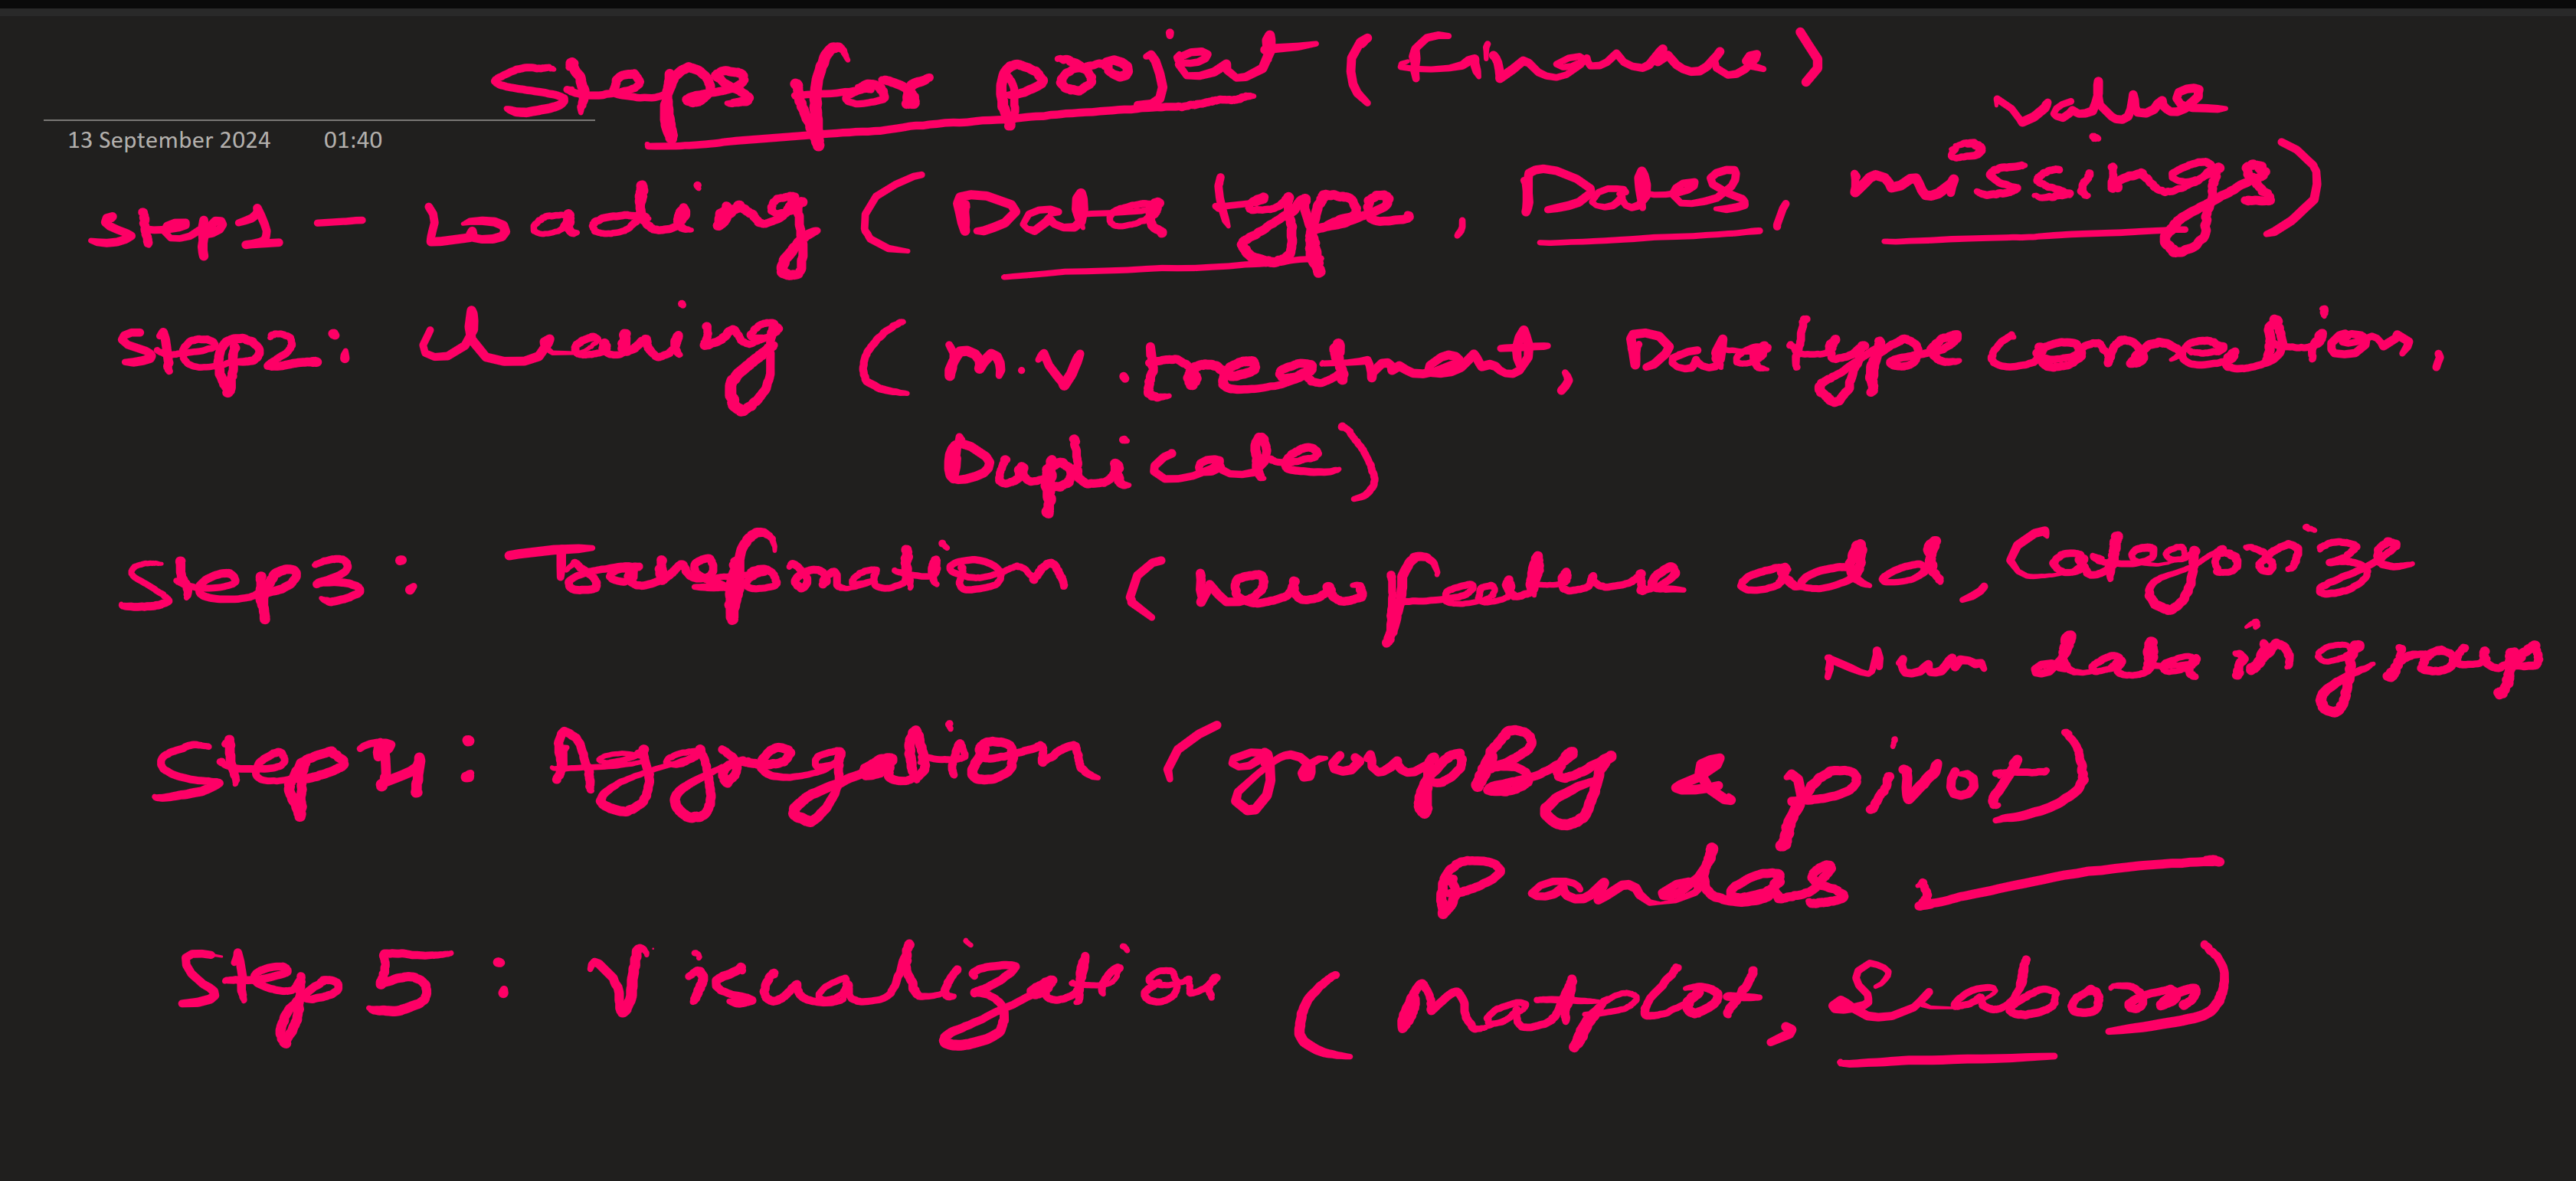 Steps for project (Finance)
13 September 2024 01:40
value
Step1 - Loading (Data type, Dates, missings)
Step2: cleaning (m.v. treatment, Data type correction,
Duplicate)
Step3: Transformation (new feature add, Categorize
Num data in group
Step4: Aggregation (groupBy & pivot)
Pandas
Step 5: Visualization (Matplot, Seaborn)